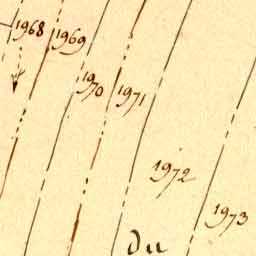 1968
1969
1970
1971
1972
1973
Du